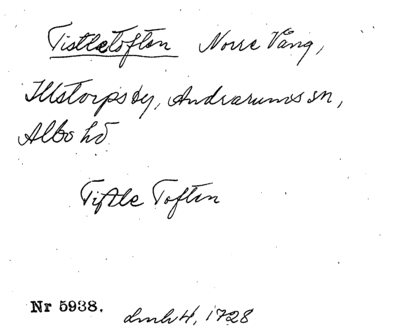 Tistletoften Norre Vång,
Illstorps by, Andrarums sn,
Albo hd
Tistle Toften
Nr 5938. lmh 4, 1728